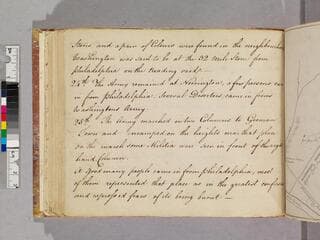 Stores and a pair of Colours were found in the neighbourhood
Washington was said to be at the 32 mile Stone from
Philadelphia on the Reading road. —
24th The Army remained at Norrington, a few persons came
in from Philadelphia. Several Deserters came in from
Washingtons Army.
25th The Army marched in two Columns to German
Town and Encamped on the heights near that place
on the march some Militia were seen in front of the right
hand Column
A good many people came in from Philadelphia, most
of them represented that place as in the greatest confusion
and expressed fears of its being burnt —